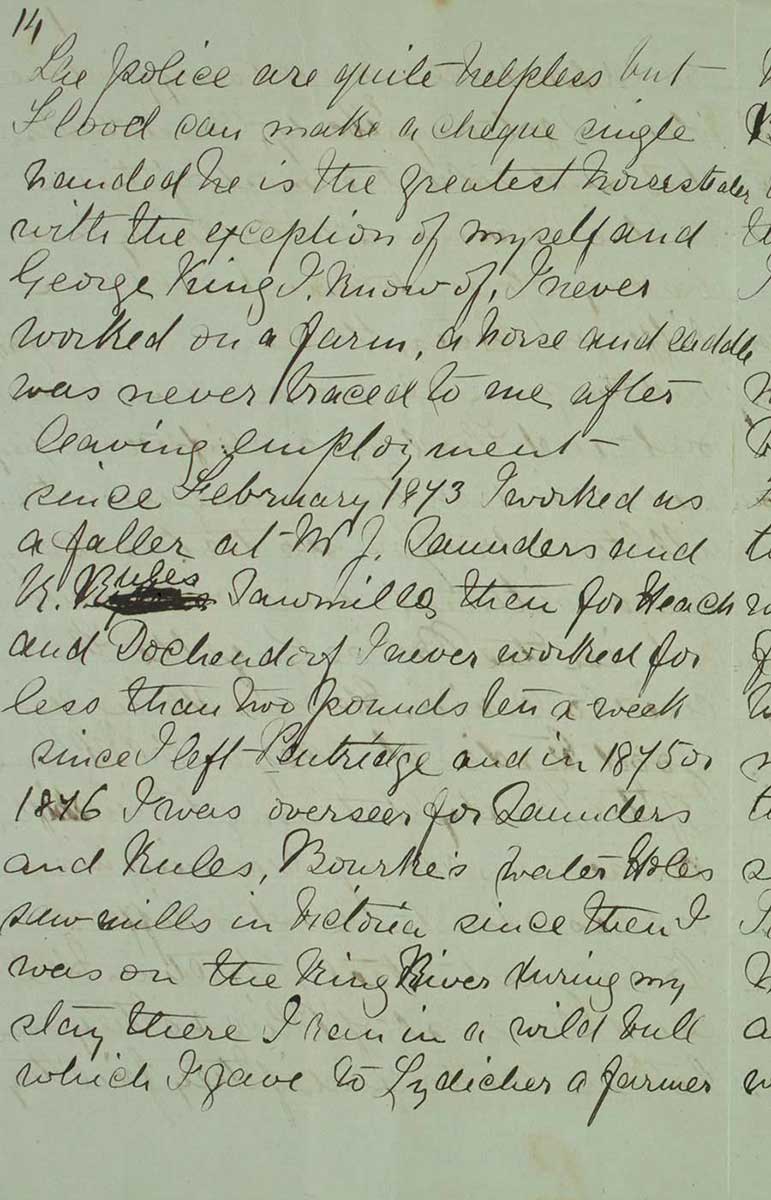 14
the police are quite helpless but
Flood can make a cheque single
handed he is the greatest horsestealer
with the exception of myself and
George King I. know of, I never
worked on a farm, a horse and saddle
was never traced to me after
leaving employment
since February 1873 I worked as
a faller at Mr J. Saunders and
R. Rules Sawmills then for Heach
and Dockendorf I never worked for
less than two pounds ten a week
since I left Pentridge and in 1875 or
1876 I was overseer for Saunders
and Rules, Bourke's water Holes
saw mills in Victoria since then I
was on the King River during my
stay there I ran in a wild bull
which I gave to Lydicher a farmer